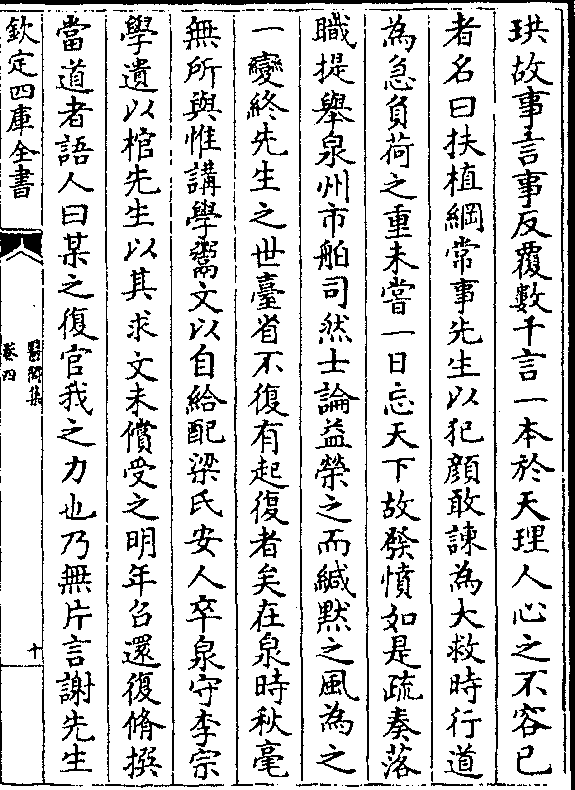 珙故事言事反覆數千言一本於天理人心之不容已
者名曰扶植綱常事先生以犯顔敢諫為大救時行道
為急負荷之重未嘗一日忘天下故發憤如是疏奏落
職提舉泉州市舶司然士論益榮之而緘默之風為之
一變終先生之世臺省不復有起復者矣在泉時秋毫
無所與惟講學鬻文以自給配梁氏安人卒泉守李宗
學遺以棺先生以其求文未償受之明年召還復脩撰
當道者語人曰某之復官我之力也乃無片言謝先生
欽定四庫全書
醫閭集
卷四
十